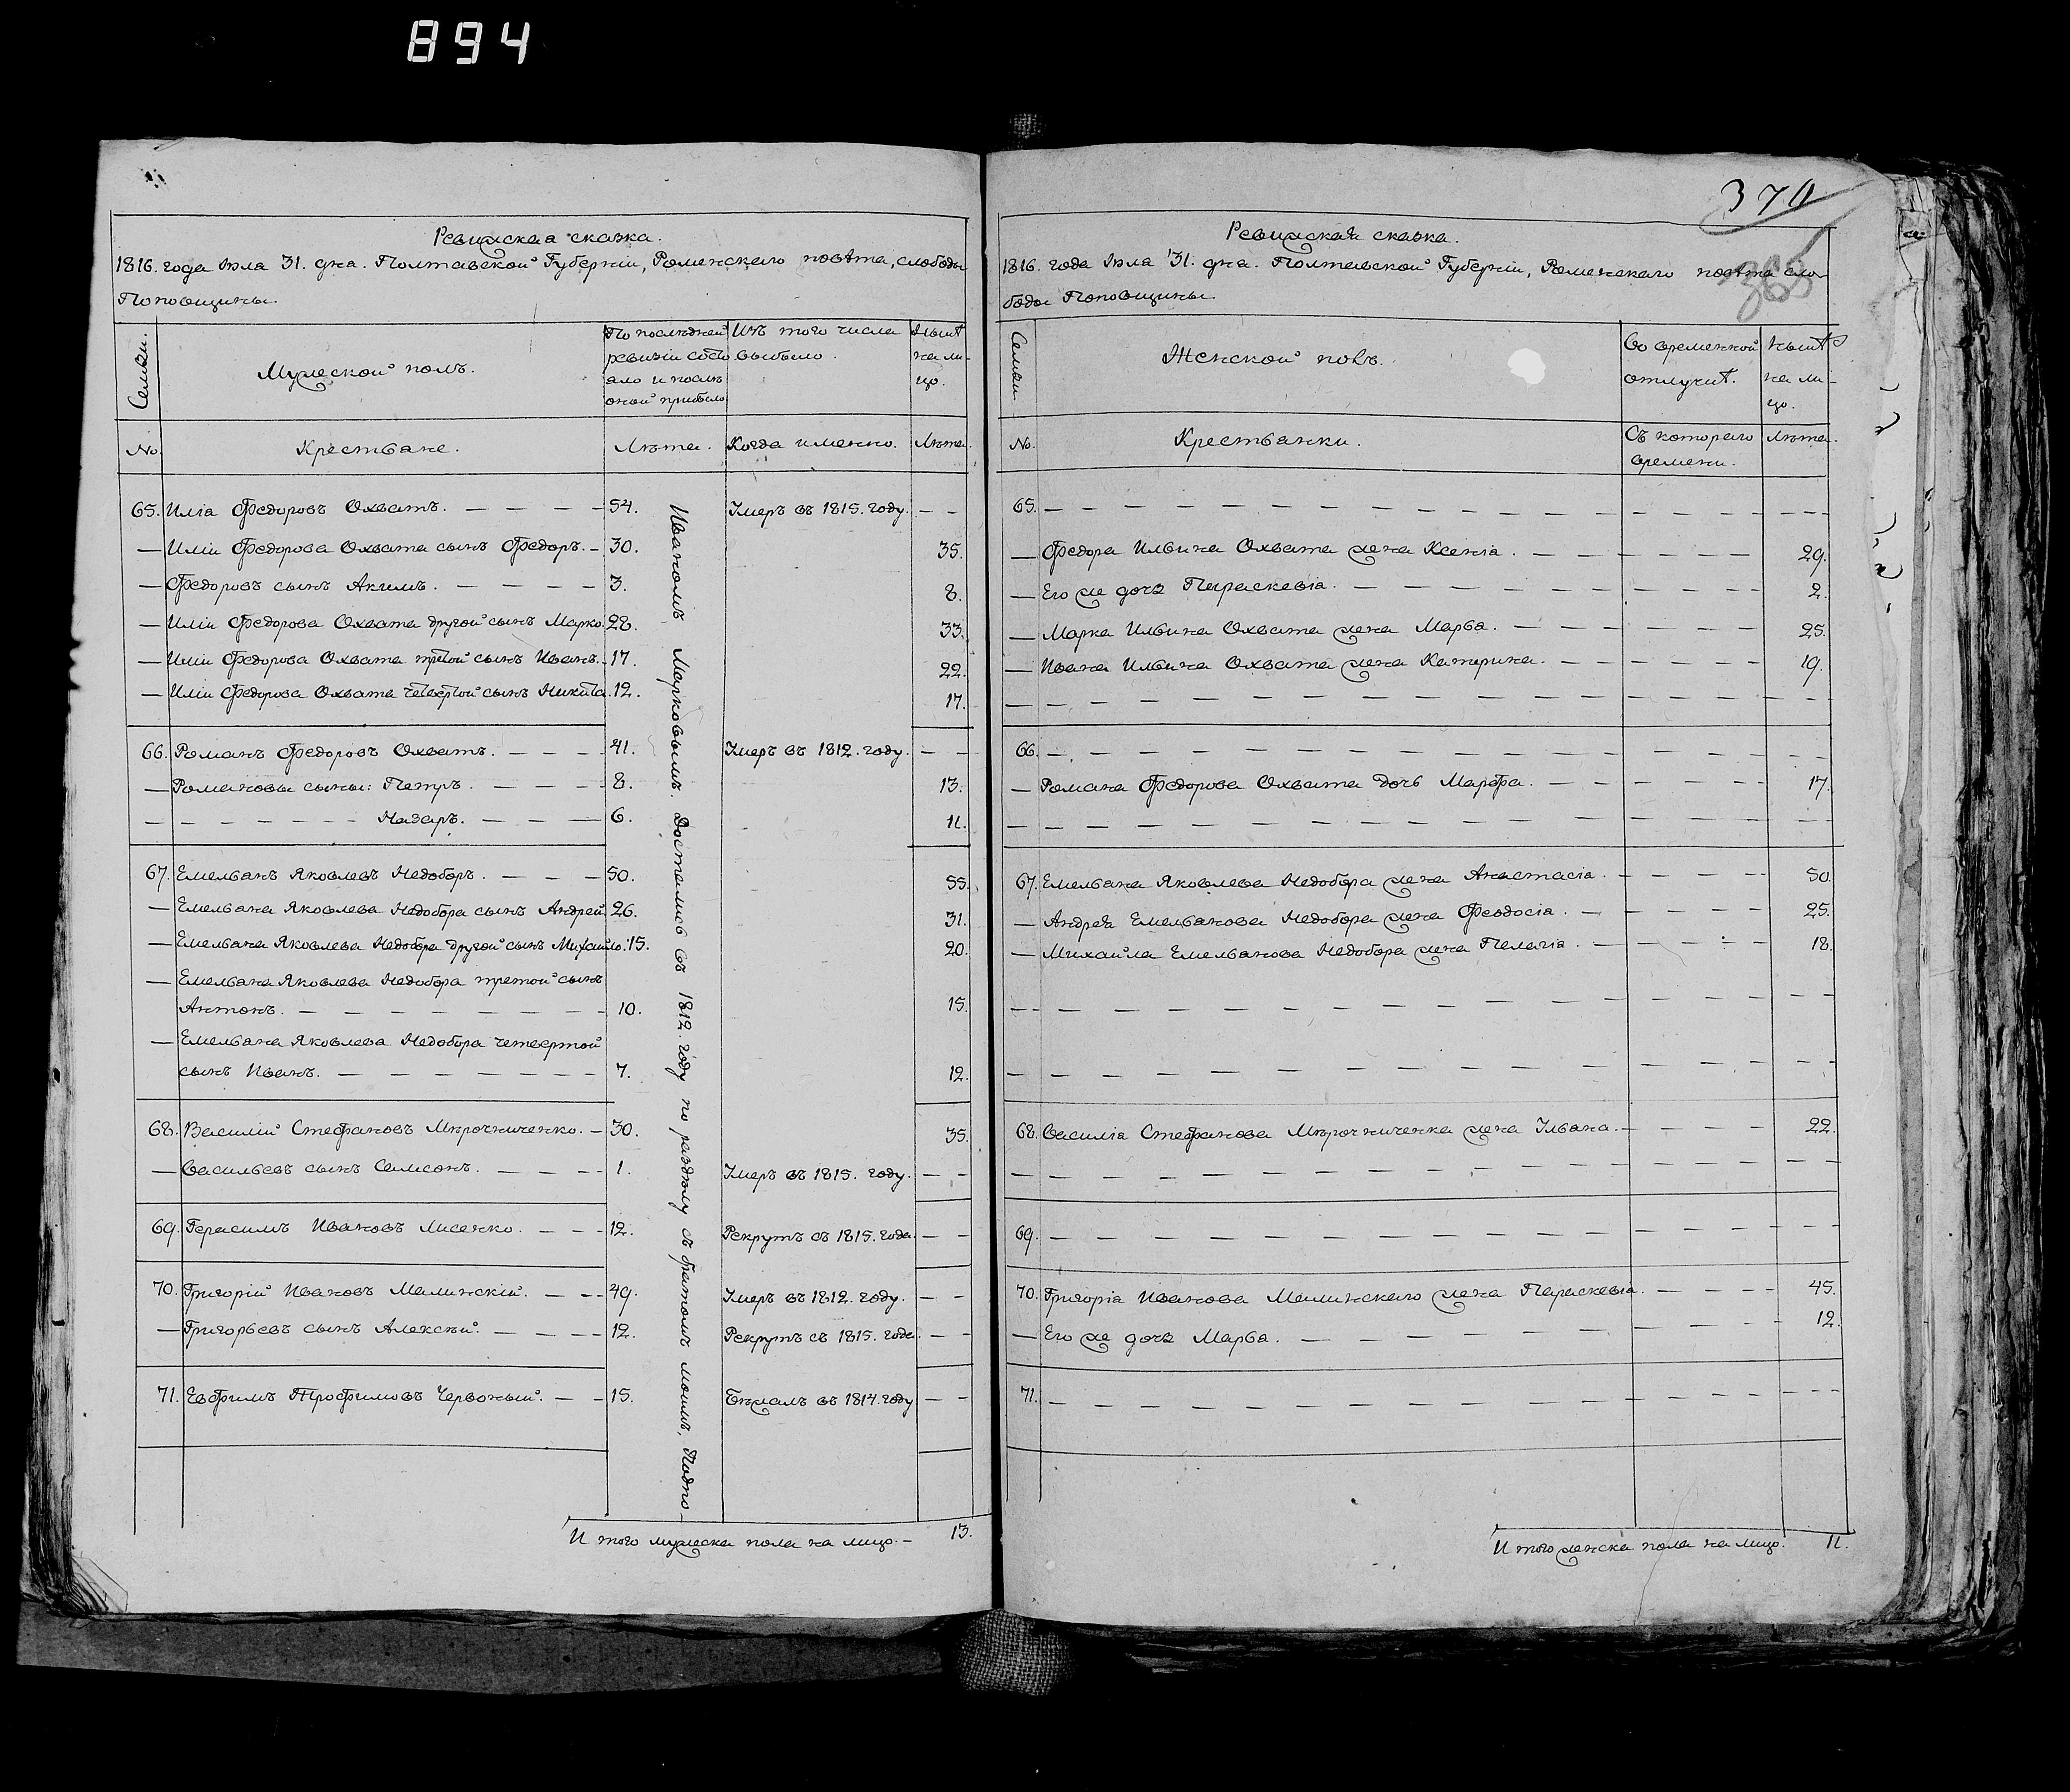 894
Ревижская сказка.
1816. года Іюла 31. дна. Полтавской Губерніи, Роменскаго повѣта, слободы
Поповщины.
Семьи.
Мужеской полъ.
По послѣдней
ревизіи состо
ало и послѣ
оной прибыло
Изъ того числа
выбыло.
Нынѣ
на ли-
цо.
No.
Крестьяне.
Лѣта.
Когда именно.
Лѣта.
65. Иліа Федоровъ Охватъ. — — — — 54. Умеръ въ 1815. году. — —
— Иліи Федорова Охвата сынъ Федоръ. — 30. 35.
— Федоровъ сынъ Акимъ. — — — — 3. 8.
— Иліи Федорова Охвата другой сынъ Марко. 28. 33.
— Иліи Федорова Охвата третой сынъ Иванъ. — 17. 22.
— Иліи Федорова Охвата четвертой сынъ Никита. 12. 17.
66. Романъ Федоровъ Охватъ. — — — 41. Умеръ въ 1812. году. — —
— Романовы сыны: Петръ. — — — — 8. 13.
— — — — — — — Назаръ. — — — 6. 11.
67. Емельанъ Яковлевъ Недоборъ. — — — 50. 55.
— Емельана Яковлева Недобора сынъ Андрей. 26. 31.
— Емельана Яковлева Недобора другой сынъ Михайло. 15. 20.
— Емельана Яковлева Недобора третой сынъ
Антонъ. — — — — — — — — 10. 15.
— Емельана Яковлева Недобора четвертой
сынъ Иванъ. — — — — — — — 7. 12.
68. Василій Стефановъ Мирочниченко. — 30. 35.
— Васильевъ сынъ Самсонъ. — — — — 1. Умеръ въ 1815. году. — —
69. Герасимъ Ивановъ Лисенко. — — — 12. Рекрутъ съ 1815. года. — —
70. Григорій Ивановъ Малинскій. — — — 49. Умеръ въ 1812. году. — —
— Григорьевъ сынъ Алексѣй. — — — — 12. Рекрутъ съ 1815. года. — —
71. Евфимъ Трофимовъ Червоный. — — 15. Бѣжалъ въ 1814. году. — —
Иваномъ Марковымъ. Досталис въ 1812. году по раздѣлу съ братомъ моимъ, Подпо-
И того мужеска пола на лицо. — 13.
370
365
Ревижская сказка.
1816. года Іюла 31. дна. Полтавской Губерніи, Роменскаго повѣта сло-
боды Поповщины.
Семьи.
Женской полъ.
Во временной
отлучкѣ.
Нынѣ
на ли-
цо.
No.
Крестьанки.
Съ котораго
времени.
Лѣта.
65. — — — — — — — — — — — —
— Федора Ильина Охвата жена Ксеніа. — — — — — — 29.
— Его же дочь Параскевіа. — — — — — — — — 2.
— Марка Ильина Охвата жена Марьа. — — — — — — 25.
— Ивана Ильина Охвата жена Катерина. — — — — — 19.
— — — — — — — — — — — — —
66. — — — — — — — — — — — —
— Романа Федорова Охвата дочь Марфа. — — — — — — 17.
— — — — — — — — — — — — —
67. Емельана Яковлева Недобора жена Анастасіа. — — — — 50.
— Андрея Емельанова Недобора жена Феодосіа. — — — — — 25.
— Михайла Емельанова Недобора жена Пелагіа. — — — — — 18.
— — — — — — — — — — — — —
— — — — — — — — — — — — —
68. Василіа Стефанова Мирочниченка жена Ульана. — — — — 22.
— — — — — — — — — — — — —
69. — — — — — — — — — — — —
70. Григоріа Иванова Малинскаго жена Параскевіа. — — — — 45.
— Его же дочь Марьа. — — — — — — — — — 12.
71. — — — — — — — — — — — —
И того женска пола на лицо. 11.